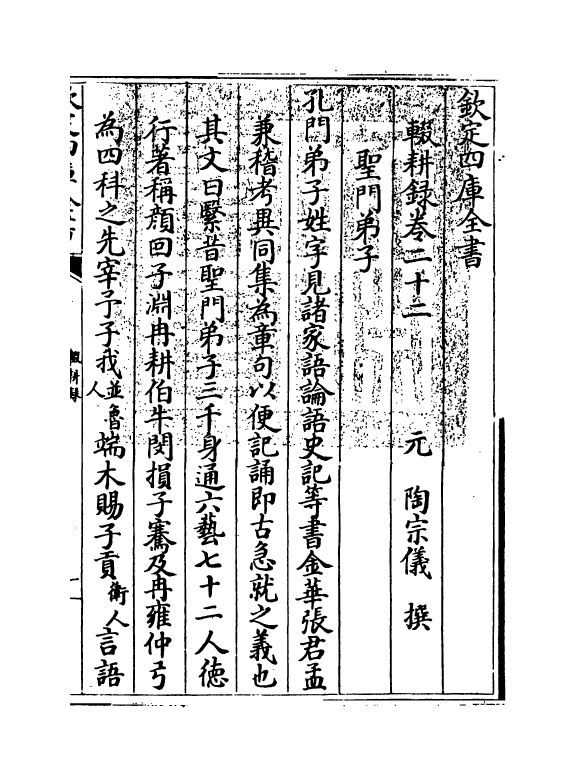 欽定四庫全書
輟耕録卷二十二　元　陶宗儀　撰
聖門弟子
孔門弟子姓字見諸家語論語史記等書金華張君孟
兼稽考異同集為章句以便記誦即古急就之義也
其文曰繄昔聖門弟子三千身通六藝七十二人徳
行著稱顔回子淵冉耕伯牛閔損子騫及冉雍仲弓
為四科之先宰予子我並魯人端木賜子貢衛人言語
欽定四庫全書
輟耕録
一